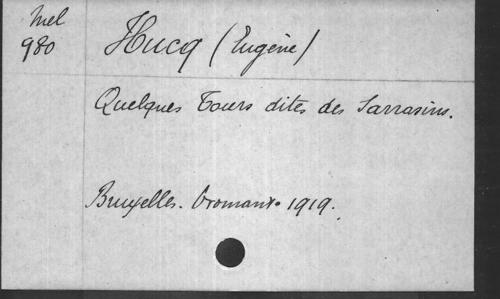 Mel
980
Hucq (Eugène)
Quelques Tours dites des Sarrasins.
Bruxelles. Vromant. 1919.